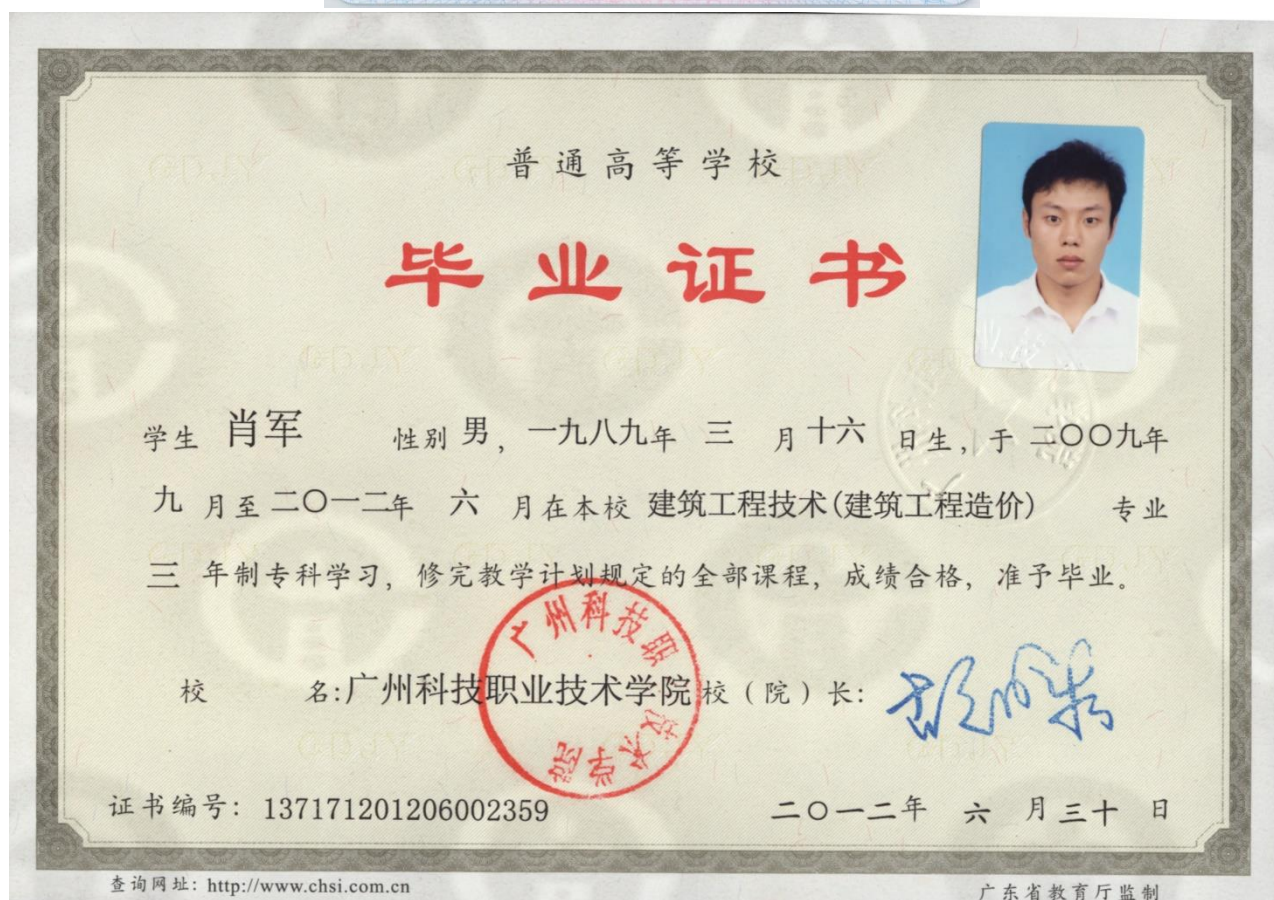 普通高等学校
毕业证书
学生 肖军 性别 男, 一九八九年 三 月 十六 日生, 于 二〇〇九年
九 月至 二〇一二年 六 月在本校 建筑工程技术(建筑工程造价) 专业
三 年制专科学习, 修完教学计划规定的全部课程, 成绩合格, 准予毕业。
广州科技职业技术学院
校 名:广州科技职业技术学院 校(院)长:
证书编号: 137171201206002359 二〇一二年 六 月三十 日
查询网址: http://www.chsi.com.cn 广东省教育厅监制